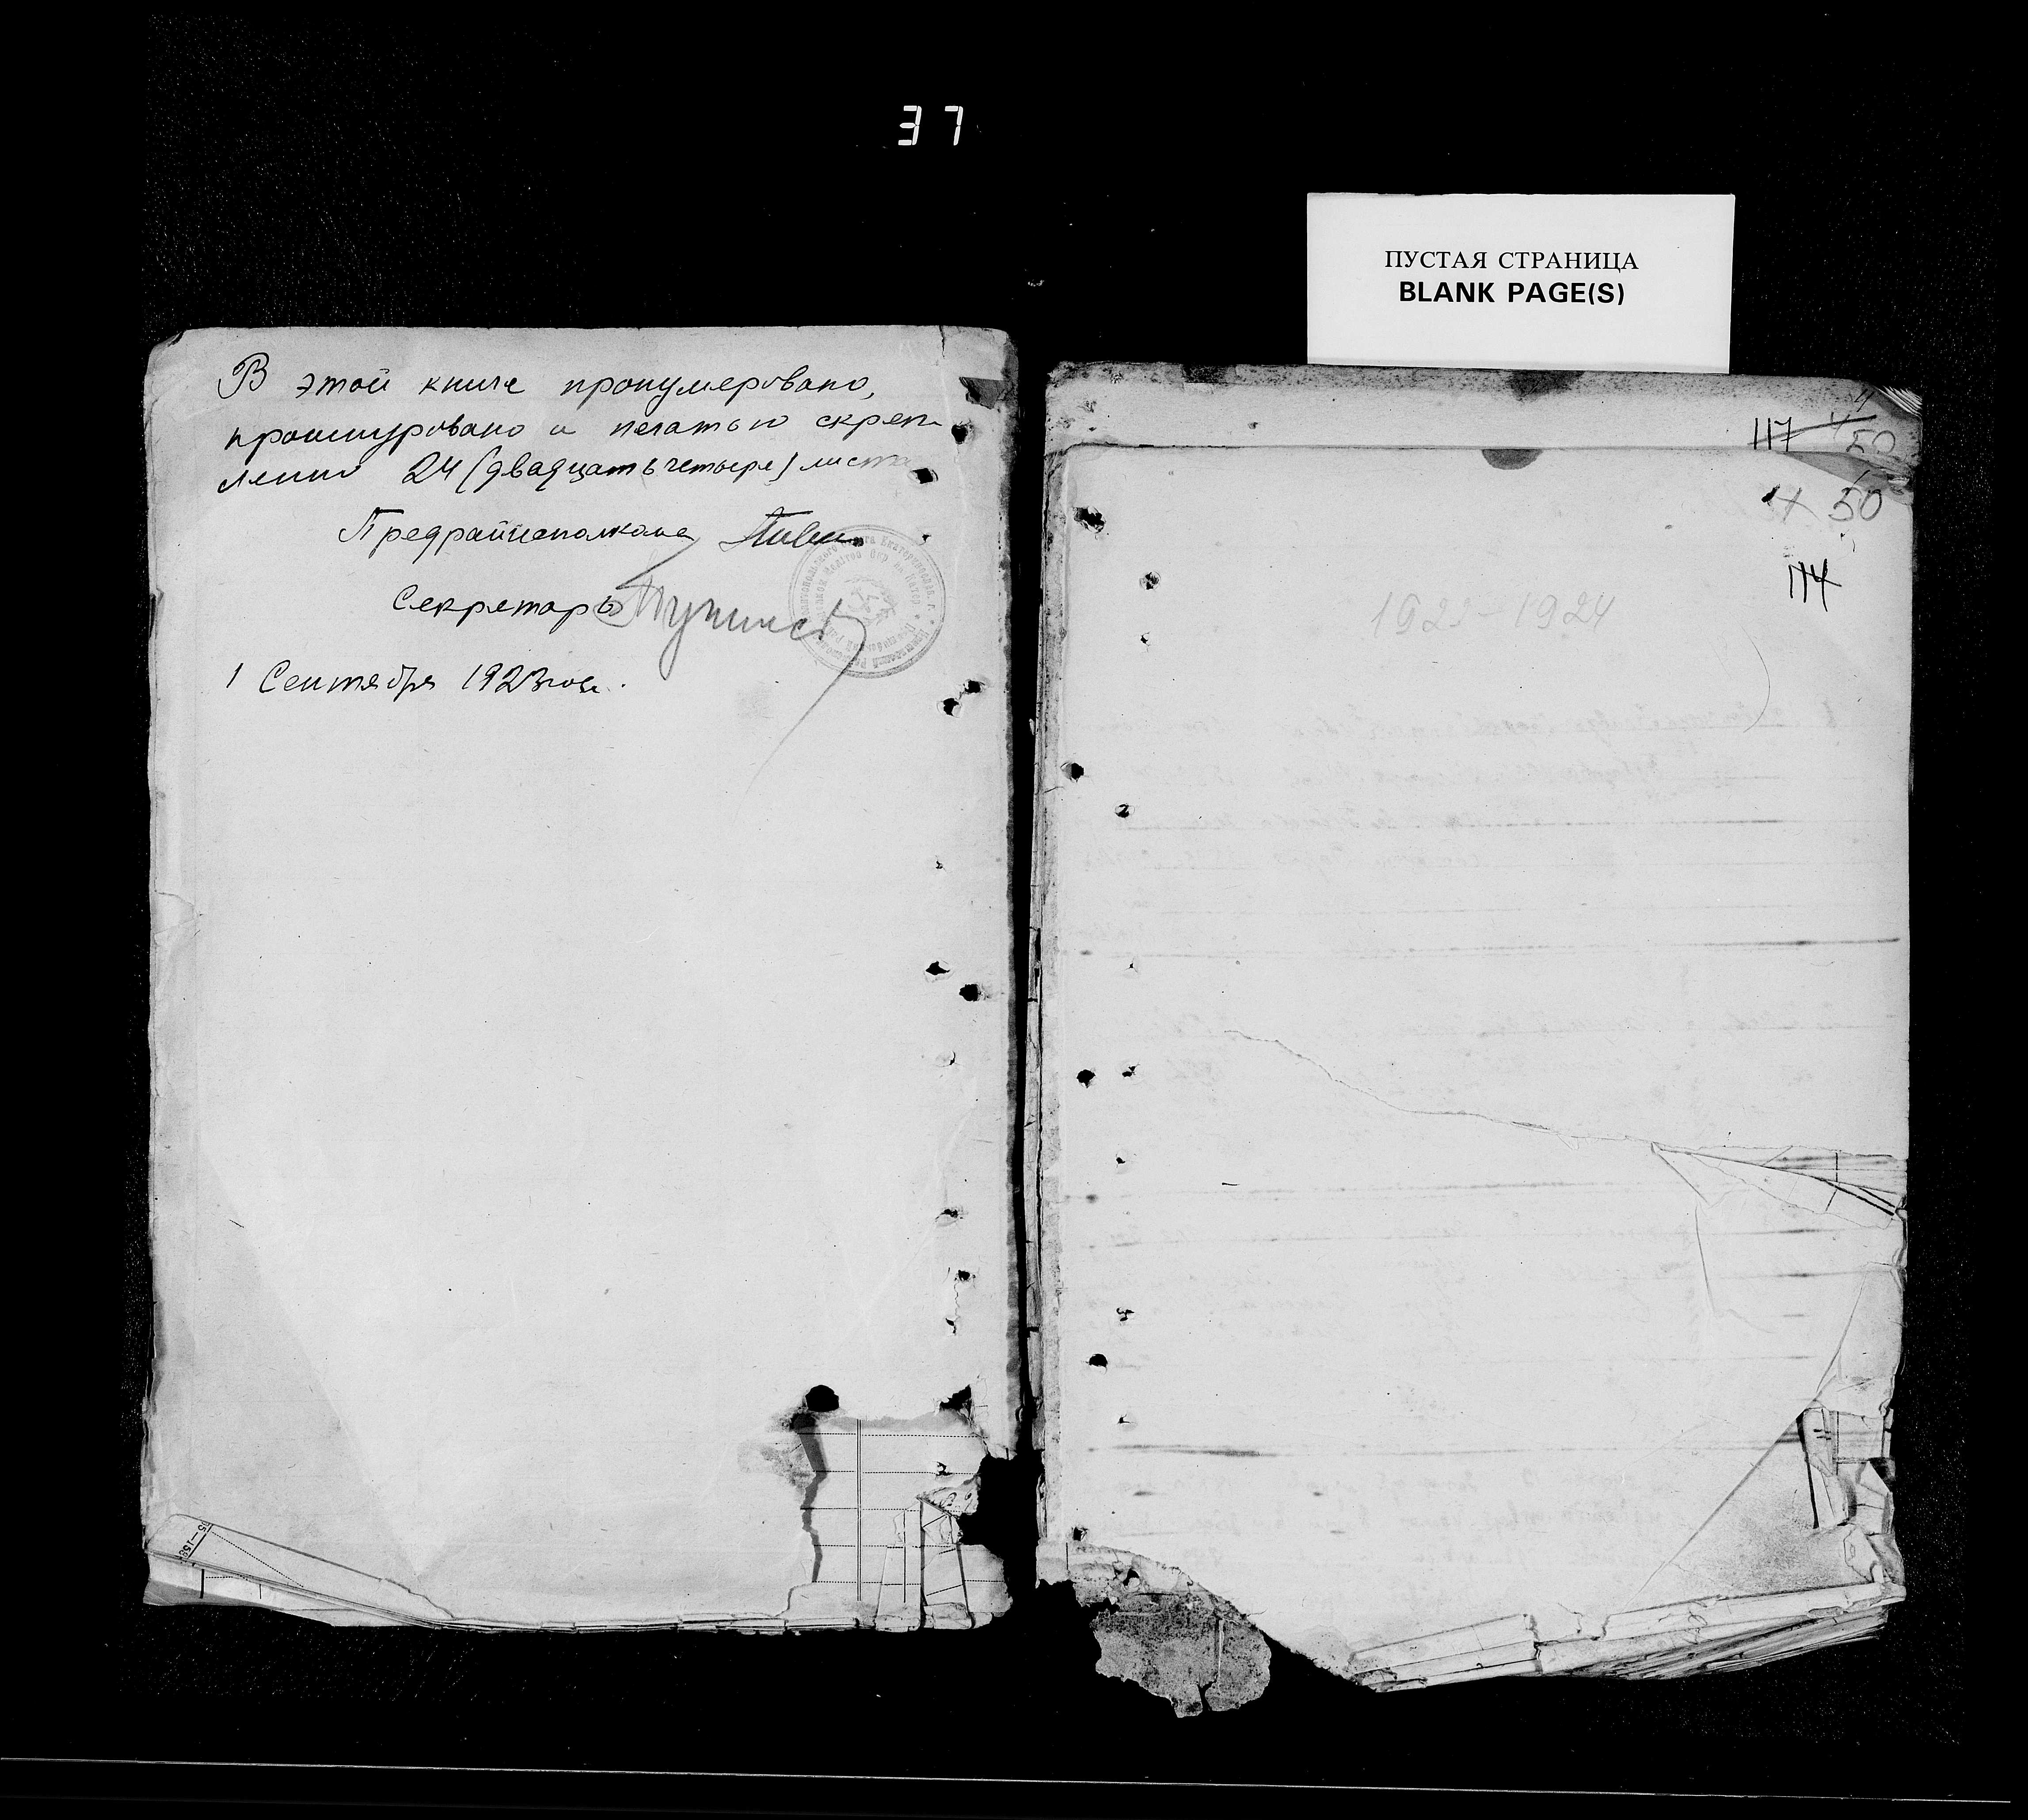 37
ПУСТАЯ СТРАНИЦА
BLANK PAGE(S)
В этой книге пронумеровано,
прошнуровано и печатью скреп-
лении 24 (двадцать четыре) листа
Предрайисполкома
Секретарь
1 Сентября 1923 года.
117 4
50
4 50
114
1923-1924